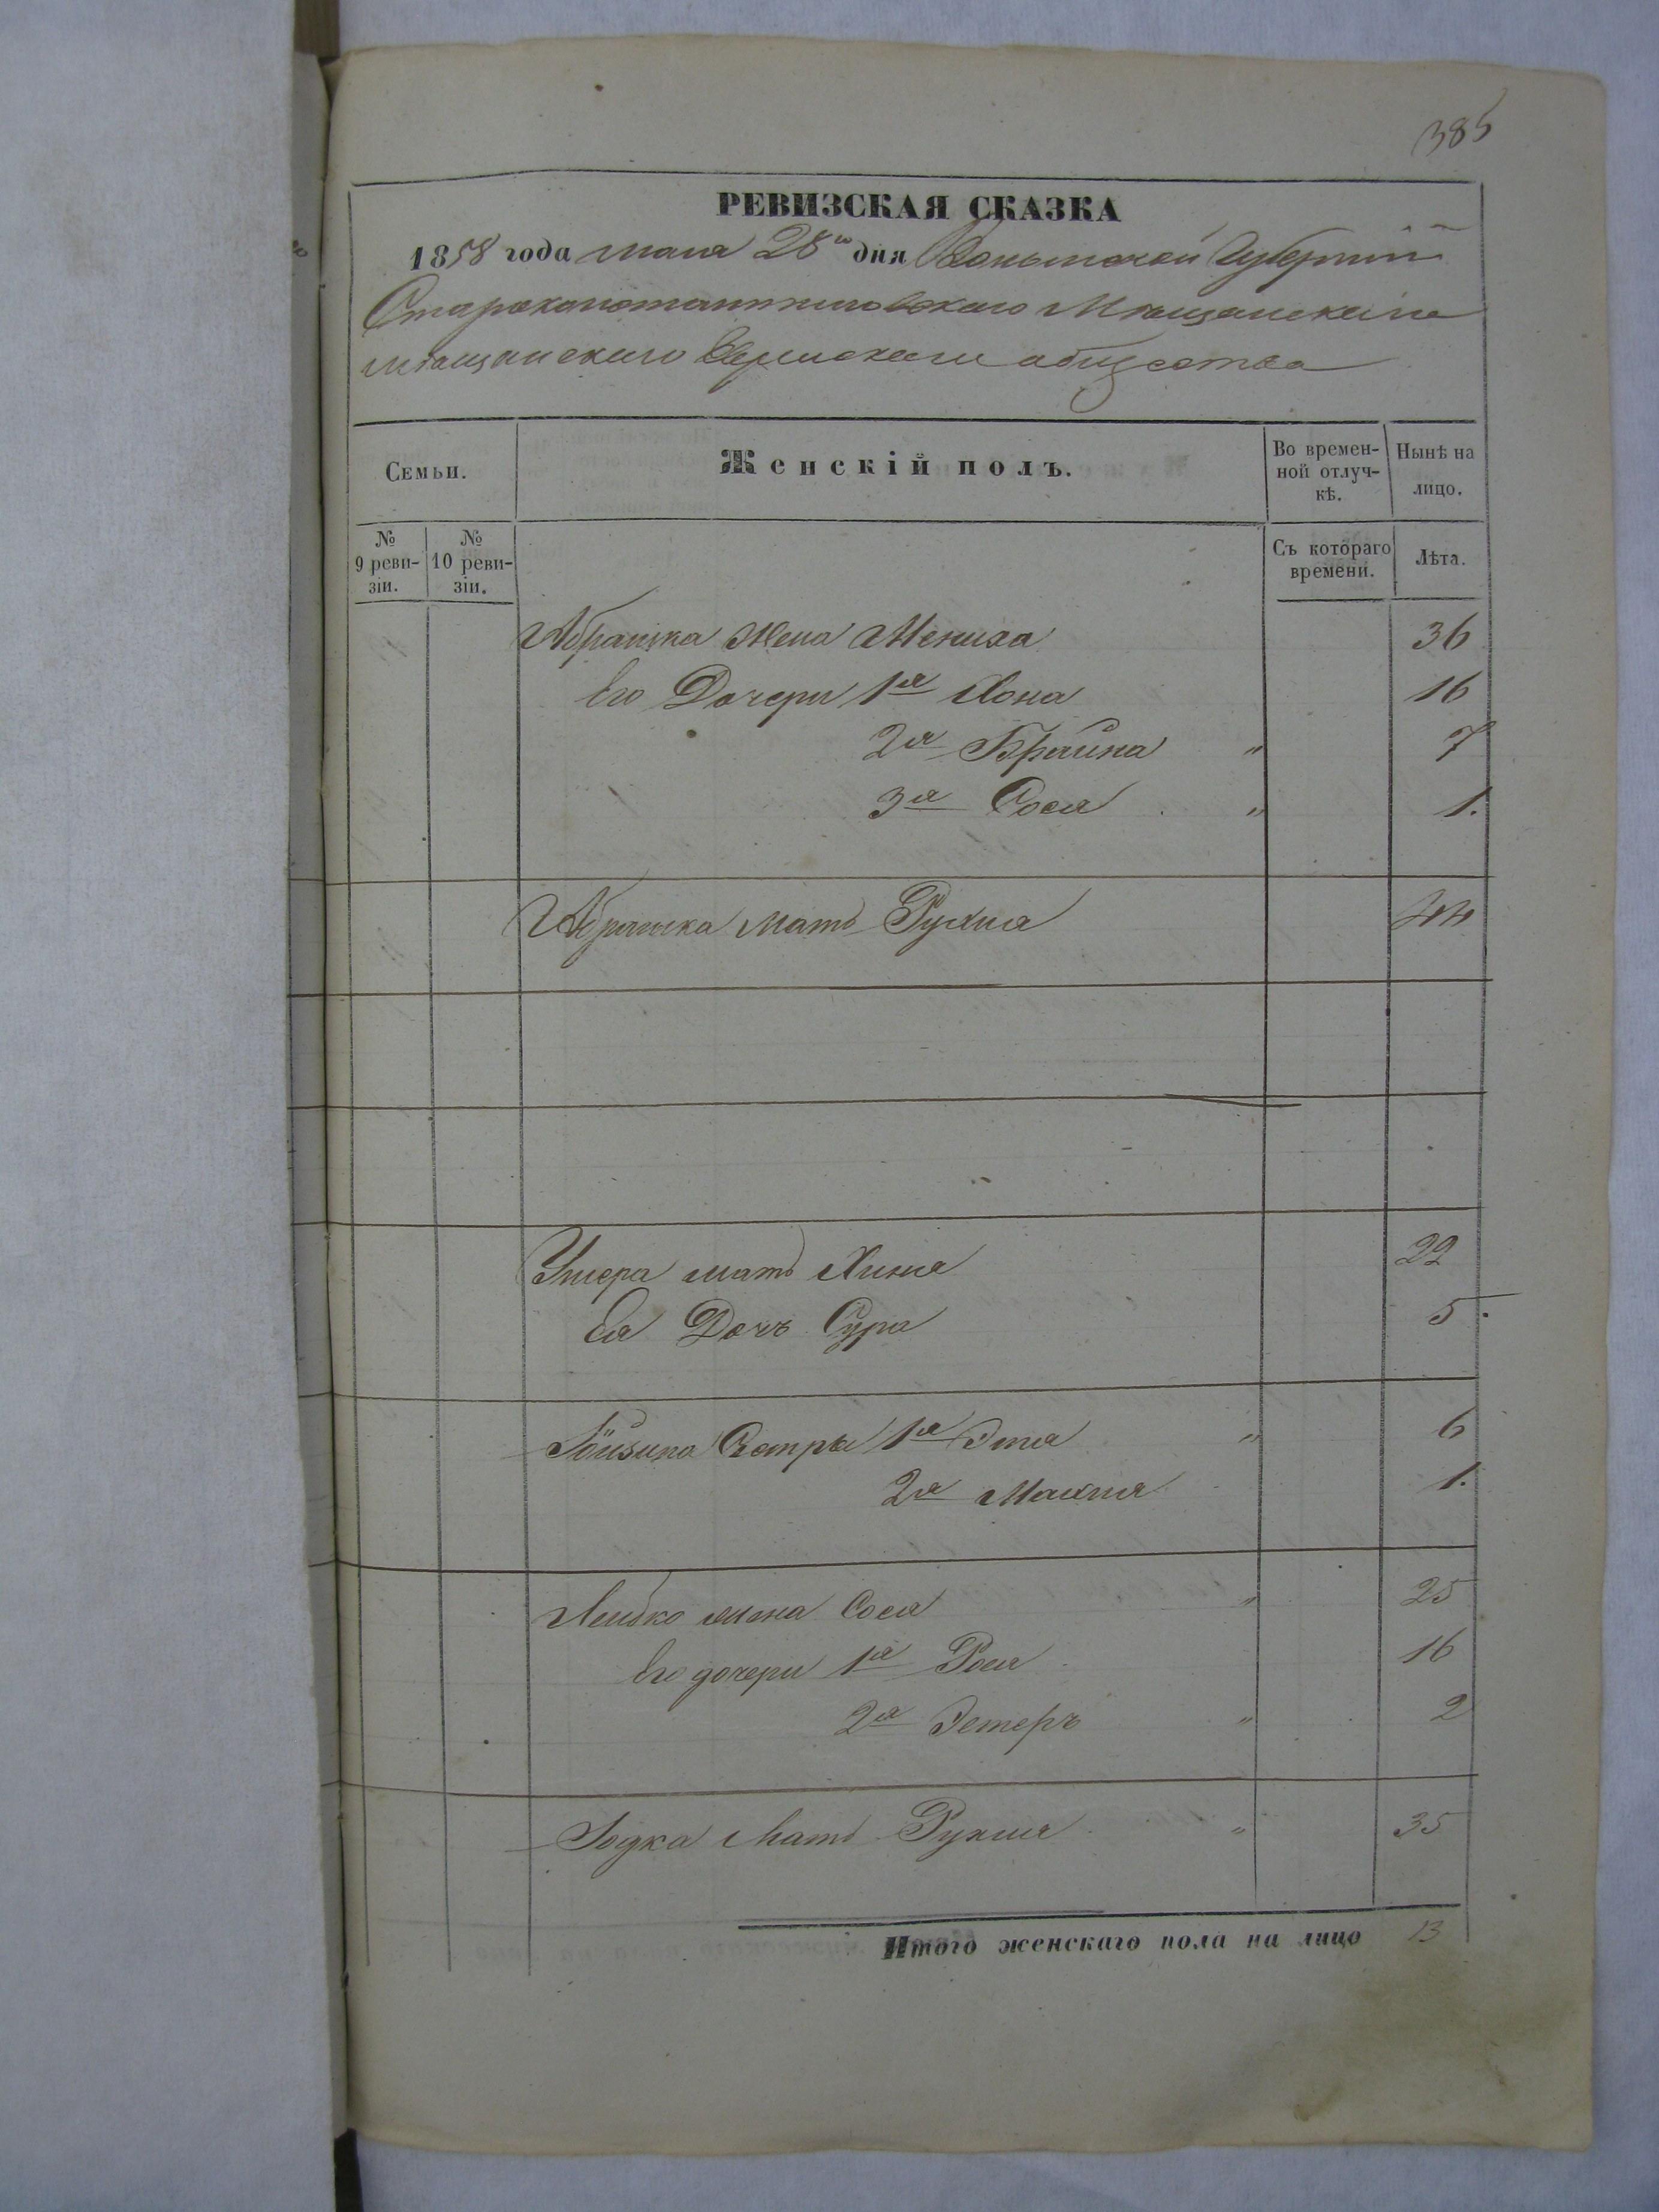 385
РЕВИЗСКАЯ СКАЗКА
1858 года мая 28го дня Волынской Губернiи
Староконстантиновского Мѣщанского
мѣщанского Еврейского общества
Семьи.
Женскiй полъ.
Во времен-
ной отлуч-
кѣ.
Нынѣ на
лицо.
№
9 реви-
зiи.
№
10 реви-
зiи.
Съ котораго
времени.
Лѣта.
Абрамка жена Мениха 36
Его Дочери 1я Хона 16
2я Брайна " 7
3я Сося " 1.
Абрамка мать Рухля 44
мать Хина 22
Ея Дочь Сура 5
Сестры 1я Этя " 6
2я Махля 1.
Лейбко жена Сося " 25
Его дочери 1я Рося 16
2я Эстеръ " 2
мать Рухля " 35
Итого женскаго пола на лицо 13